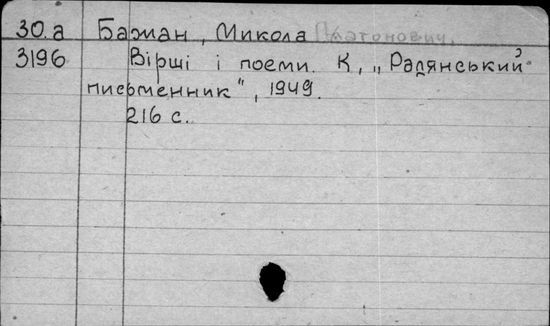 30.а Бажан, Микола Платонович.
3196 Вірші і поеми. К., „Радянський
письменник", 1949.
216 с.